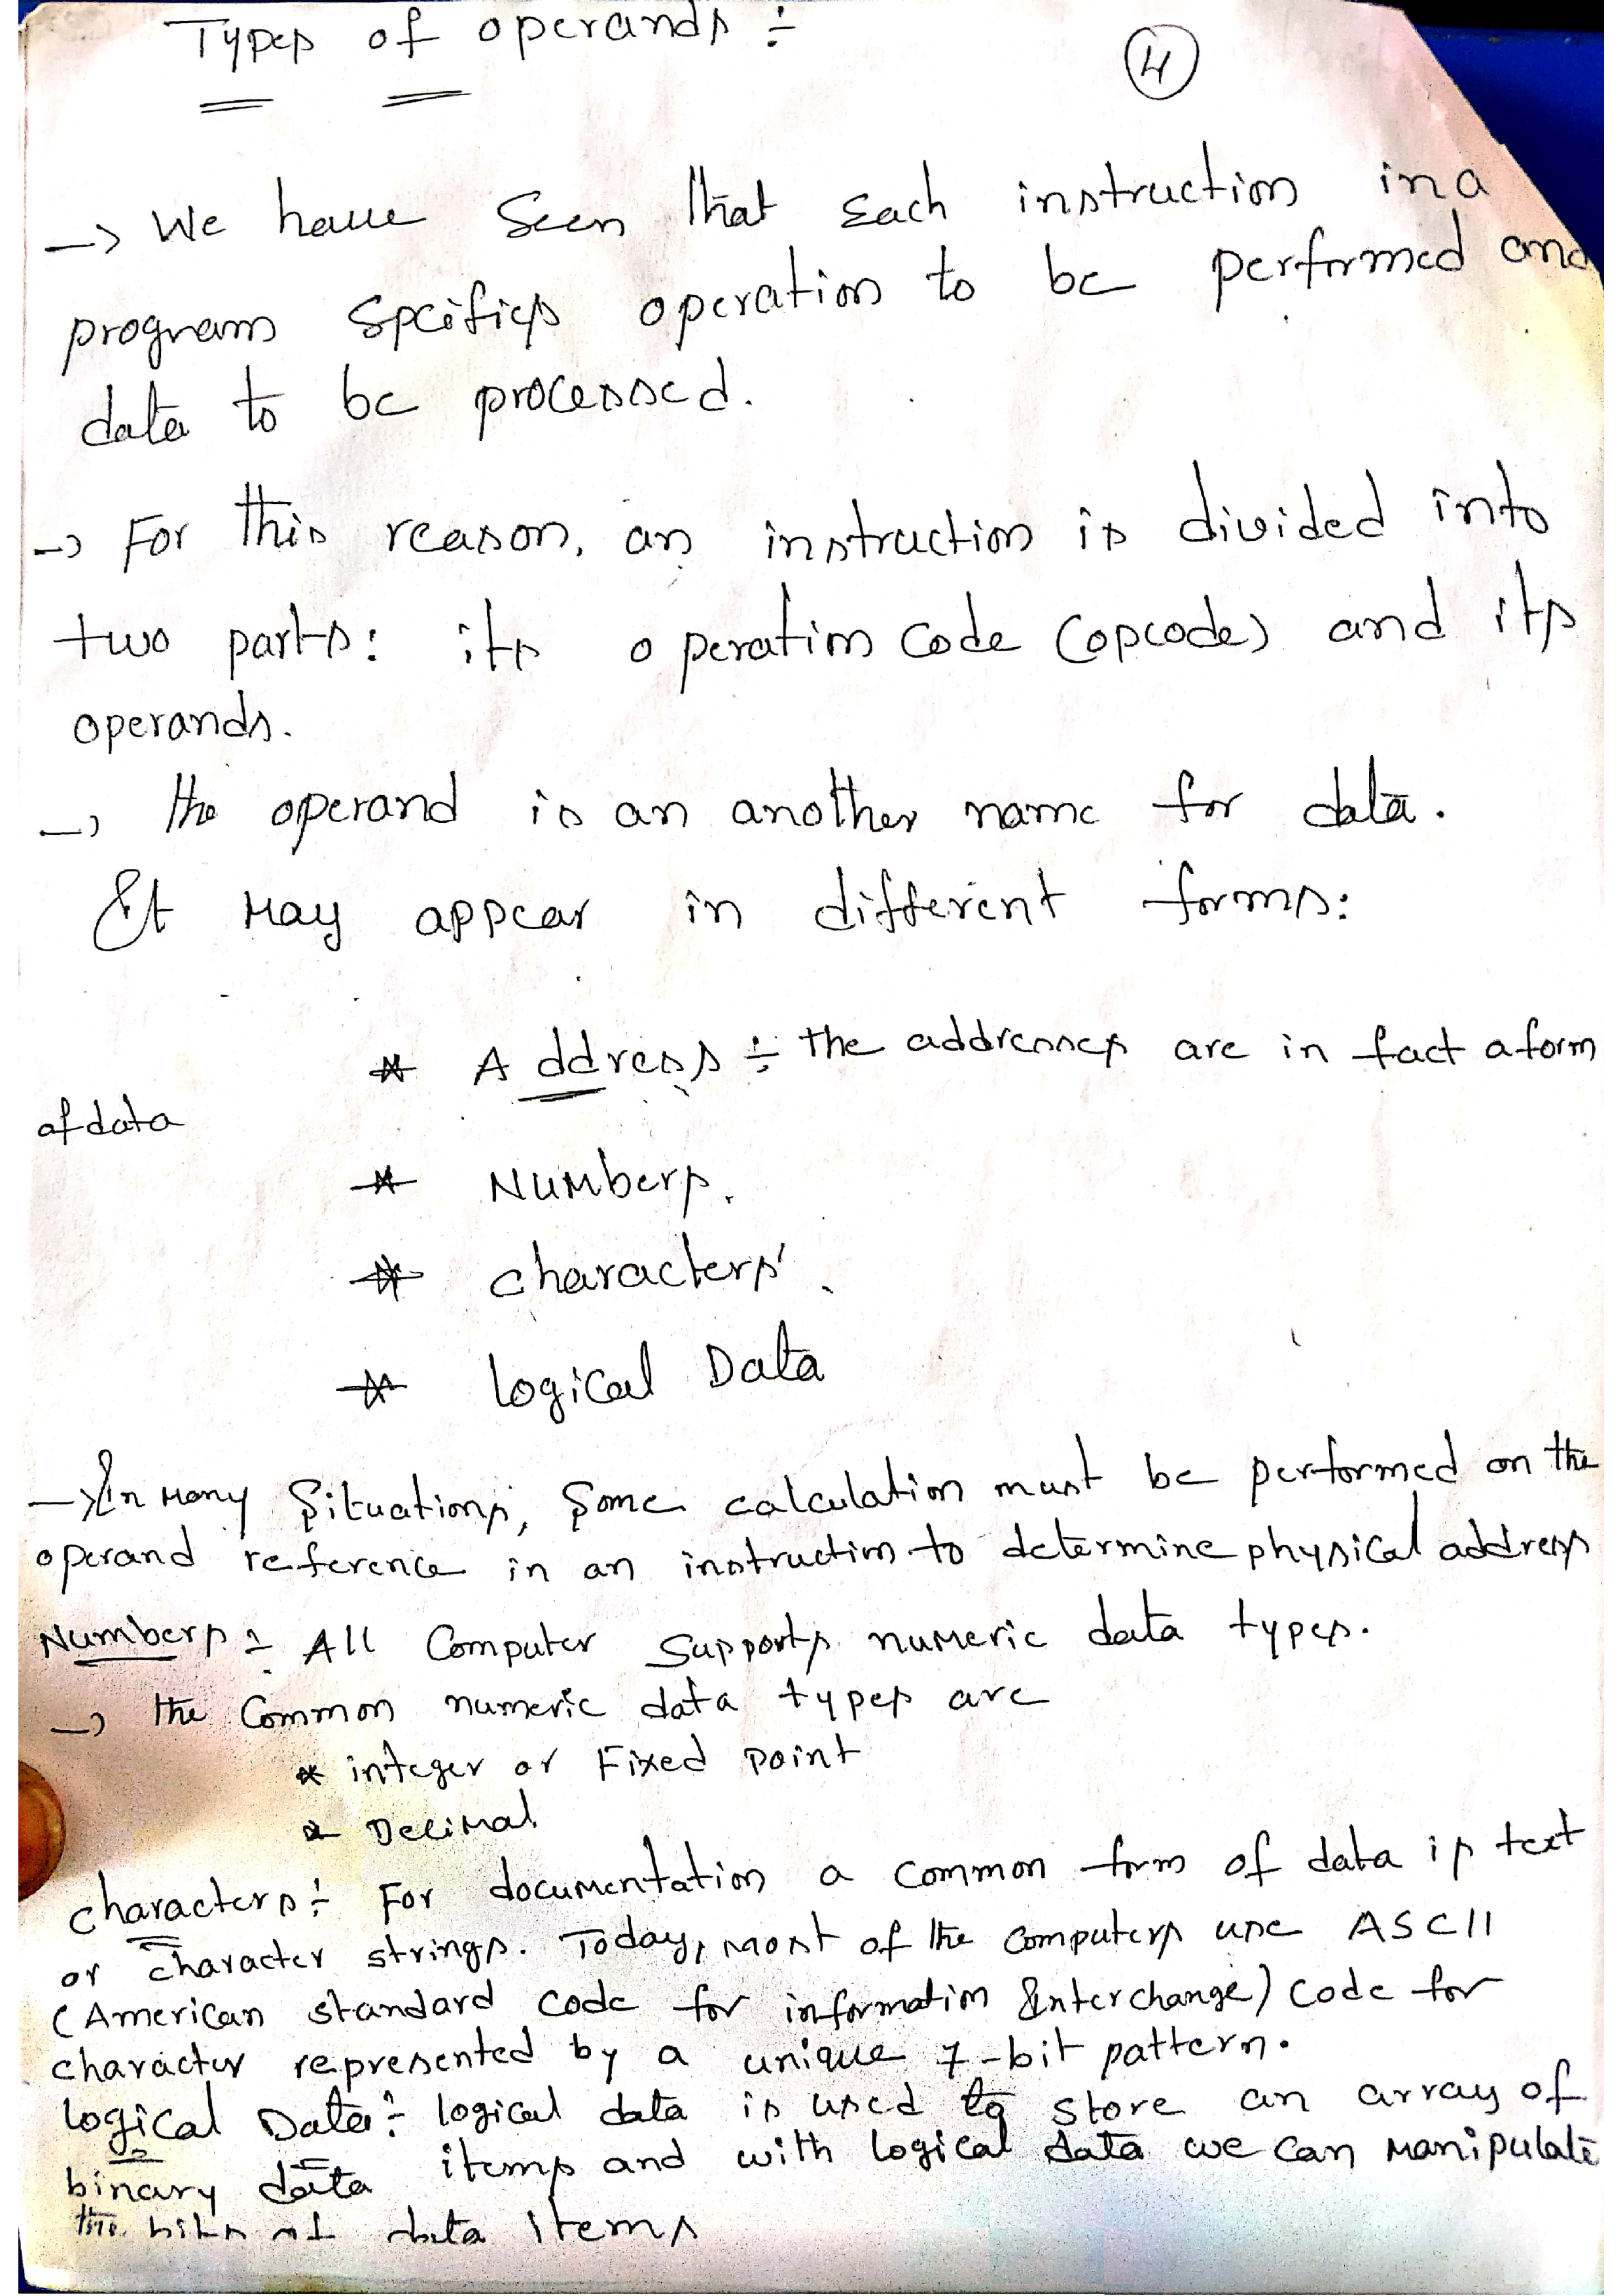 Types of operands :-
4
-> We have seen that each instruction in a
program specifies operation to be performed and
data to be processed.
-> For this reason, an instruction is divided into
two parts: its operation code (opcode) and its
operands.
-> the operand is an another name for data.
It may appear in different forms:
* Address :- the addresses are in fact a form
of data
* Numbers.
* characters.
* logical Data
-> In many situations, some calculation must be performed on the
operand reference in an instruction to determine physical address
Numbers :- All Computer supports numeric data types.
-> the Common numeric data types are
* integer or Fixed point
* Decimal
characters :- For documentation a common form of data is text
or character strings. Today, most of the computers use ASCII
(American standard code for information Interchange) code for
character represented by a unique 7-bit pattern.
logical Data :- logical data is used to store an array of
binary data items and with logical data we can manipulate
the bits of data items